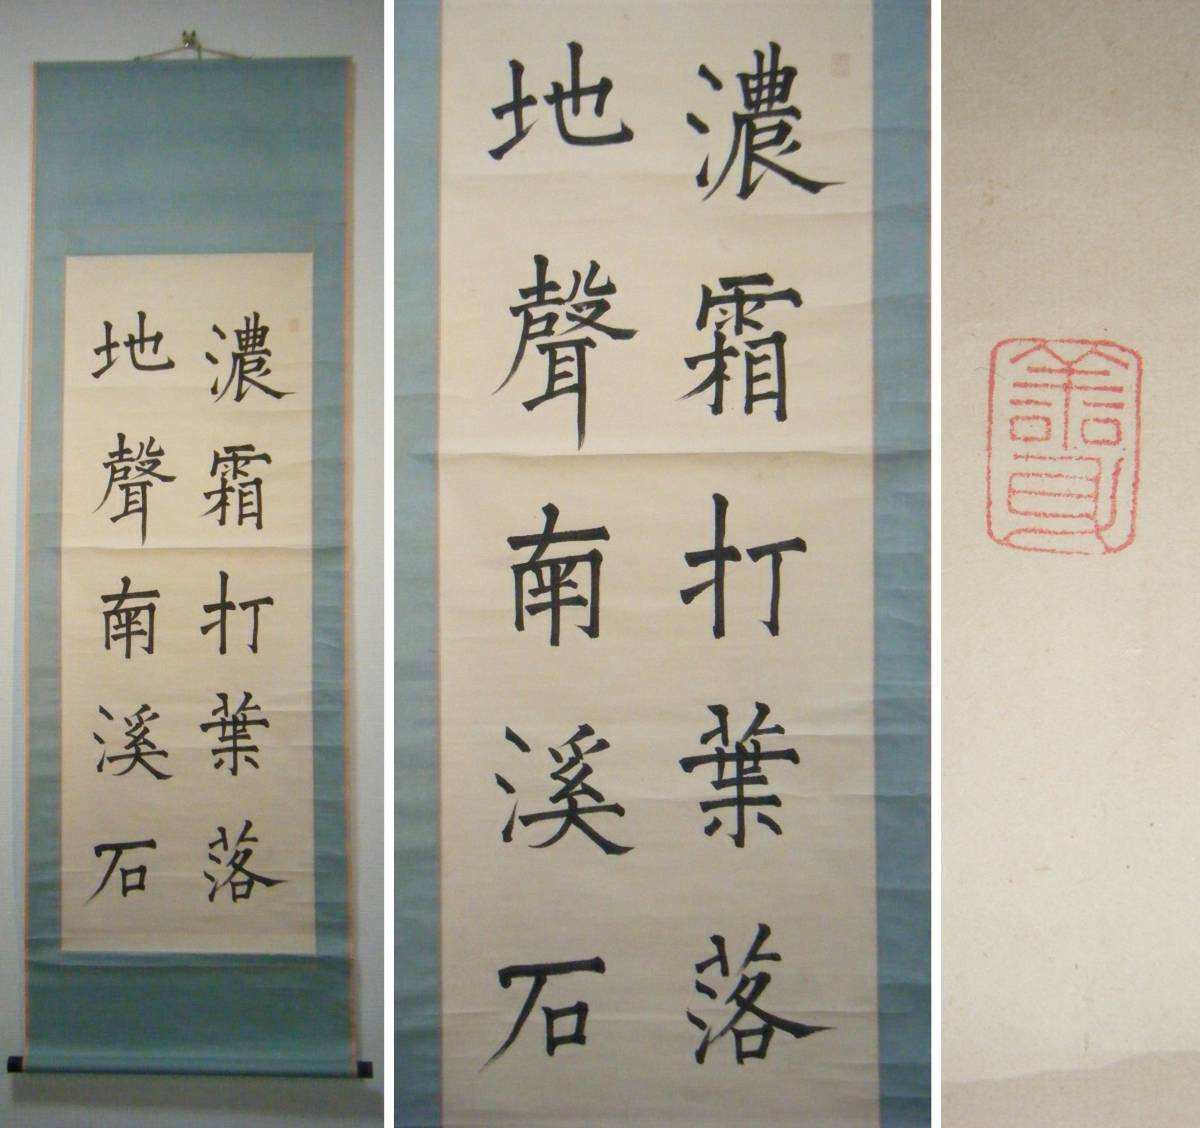 濃霜打葉落
地聲南溪石
濃霜打葉落
地聲南溪石